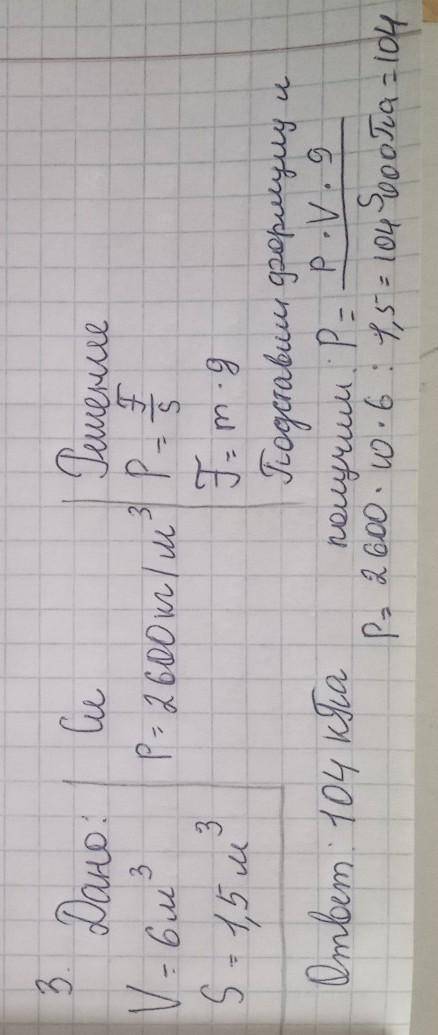 3.
Дано:
V = 6м³
S = 1,5 м³
Си
P = 2600кг/м³
Решение
P = F/S
F = m · g
Подставим формулу и
получим: P = P · V · g / S
P = 2600 · 10 · 6 : 1,5 = 104 000Па = 104
Ответ: 104 кПа